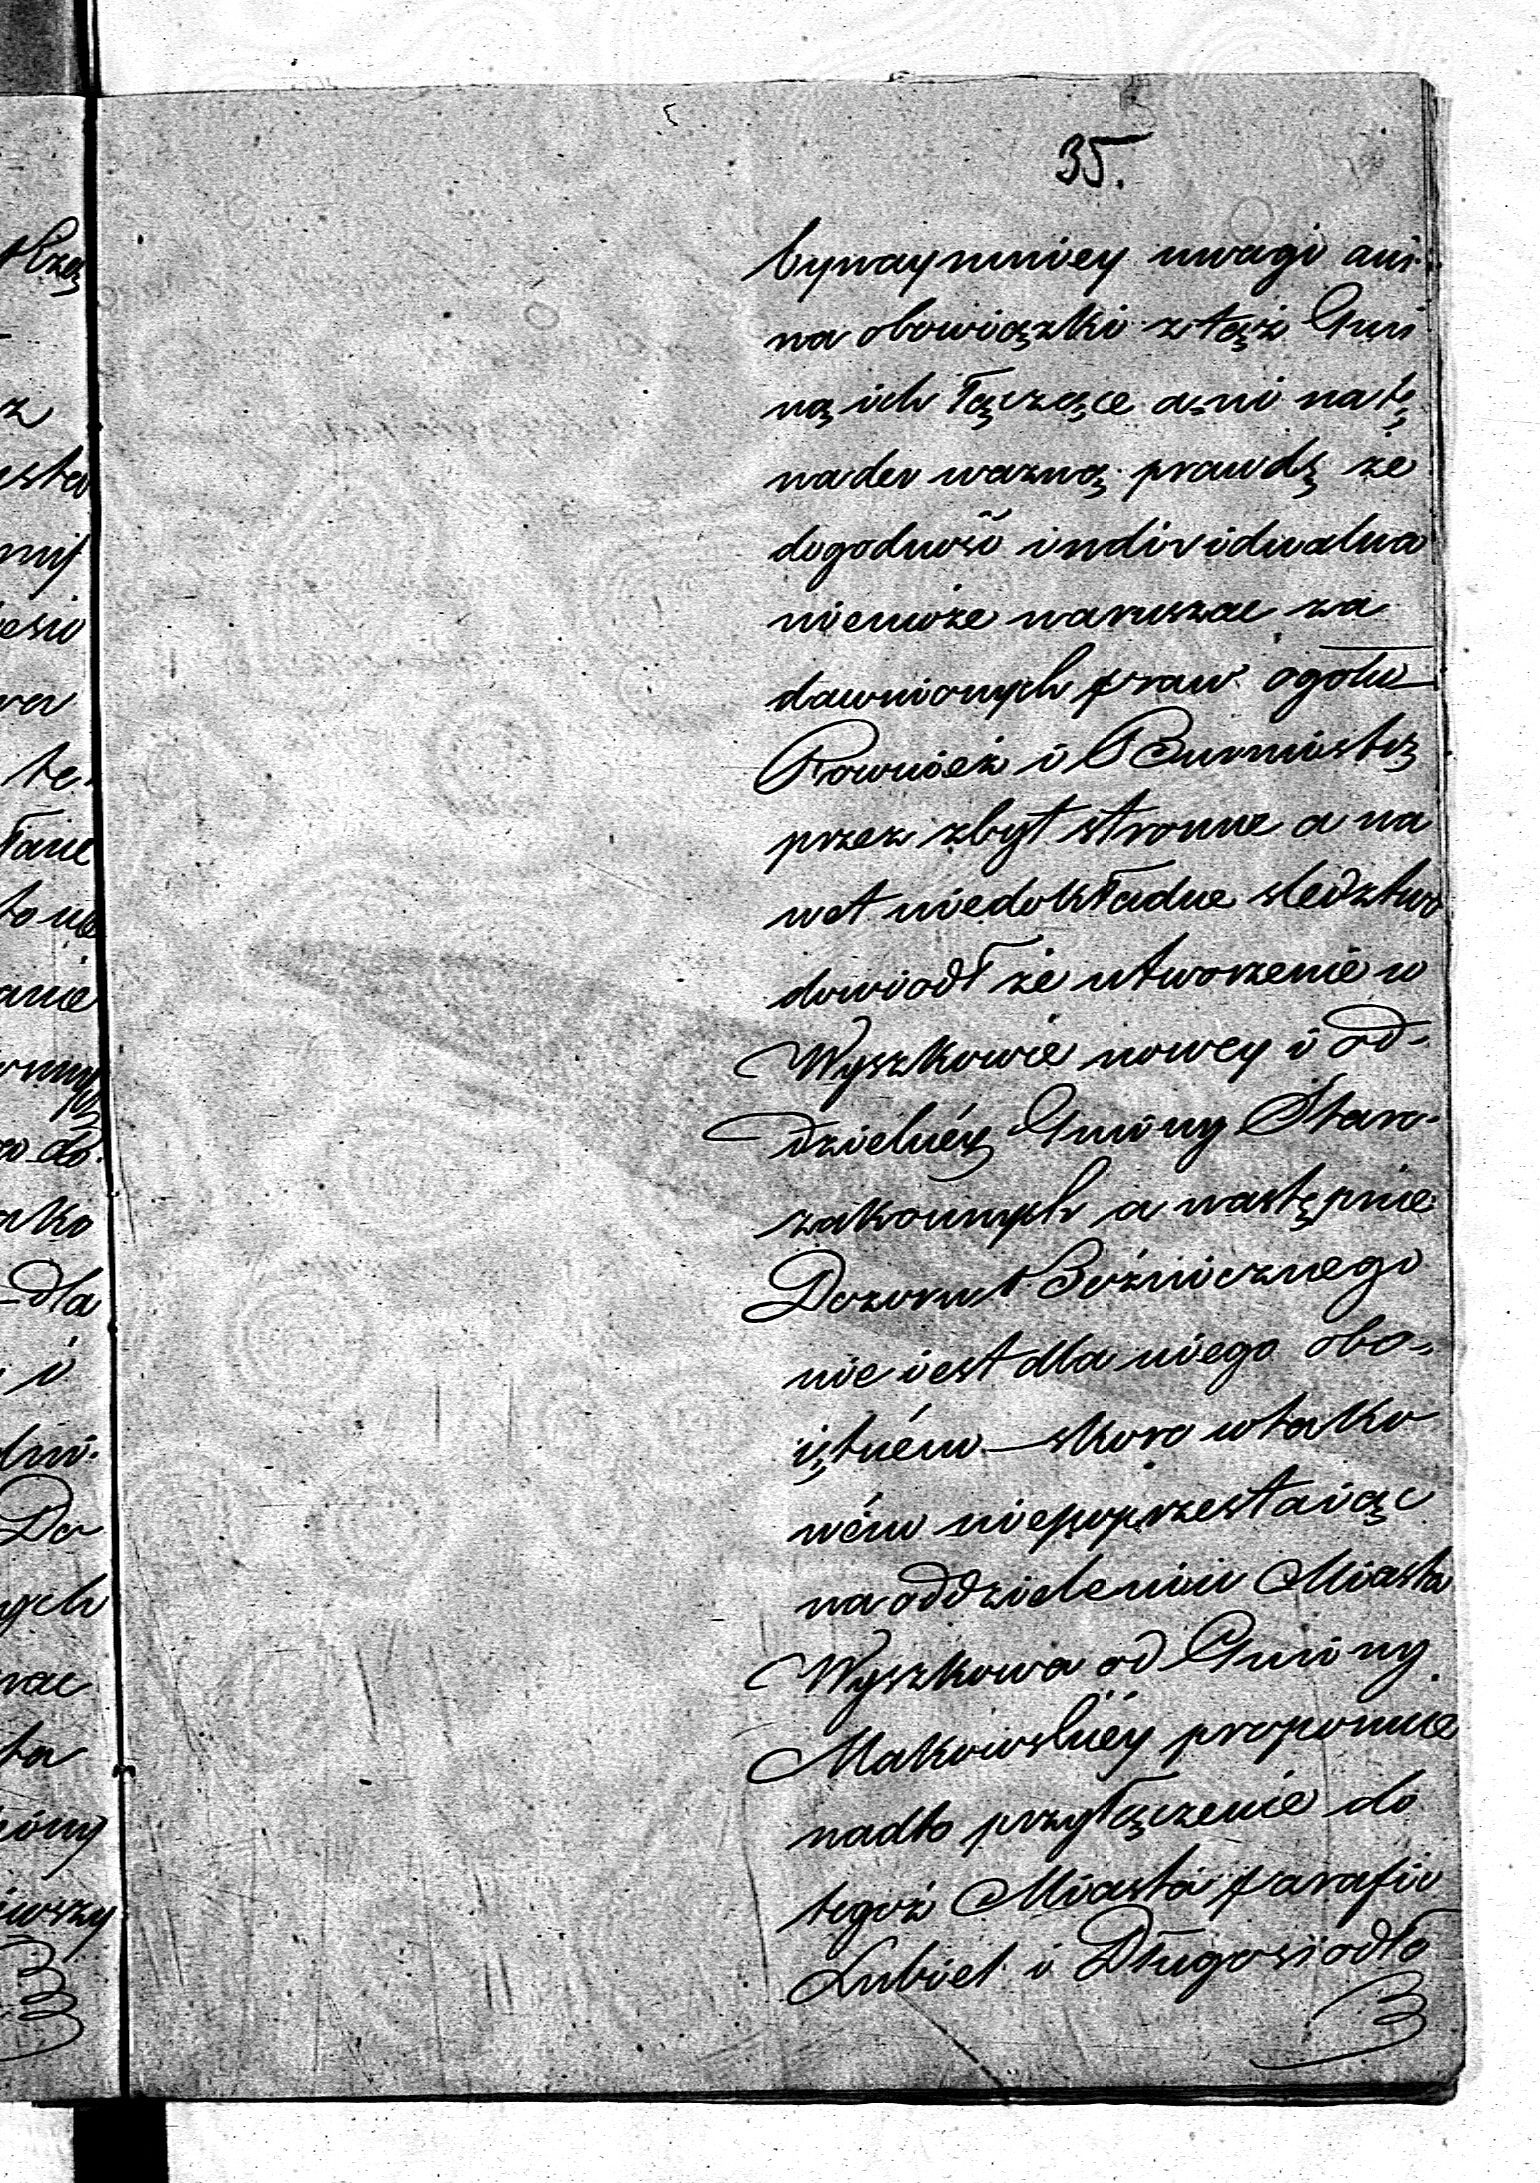 35.
bynaymniey uwagi ani
na obowiązki z tąż Gmi
ną ich łączące ani na tę
nader wazną prawdę że
dogodność individualna
niemoże naruszac za
dawnionych praw ogołu
Rownież i Burmistrz
przez zbyt stronne a na
wet niedokładne sledztwo
dowiodł że utworzenie w
Wyszkowie nowey i od-
dzielnéy Gminy Staro-
zakonnych a następnie
Dozoru Bóżnicznego
nie iest dla niego obo-
iętném — skoro w tako
wém niepoprzestaiąc
na oddzieleniu Miasta
Wyszkowa od Gminy
Makowskiéy proponuie
nadto przyłączenie do
tegoż Miasta parafii
Lubiel i Długosiodło